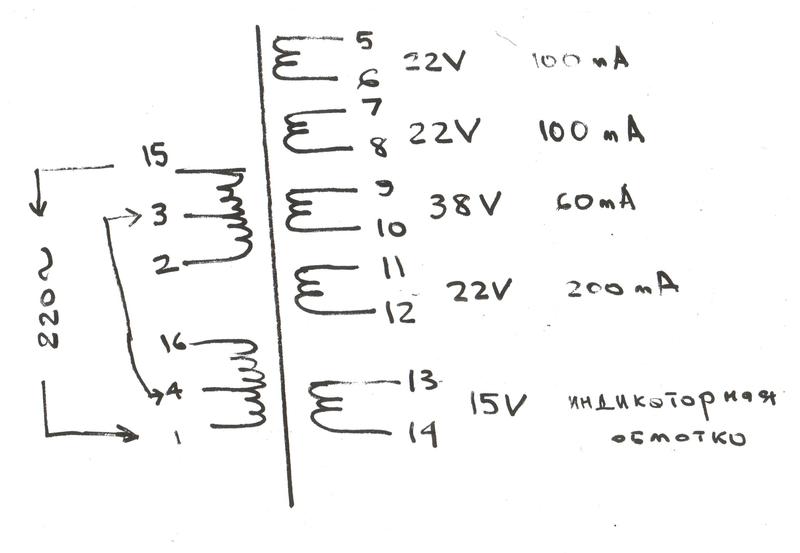 5
22V 100 mA
6
7
22V 100 mA
8
15
9
38V 60mA
3
10
2
11
22V 200 mA
12
220~
16
13
4
15V индикоторная
обмотко
1
14